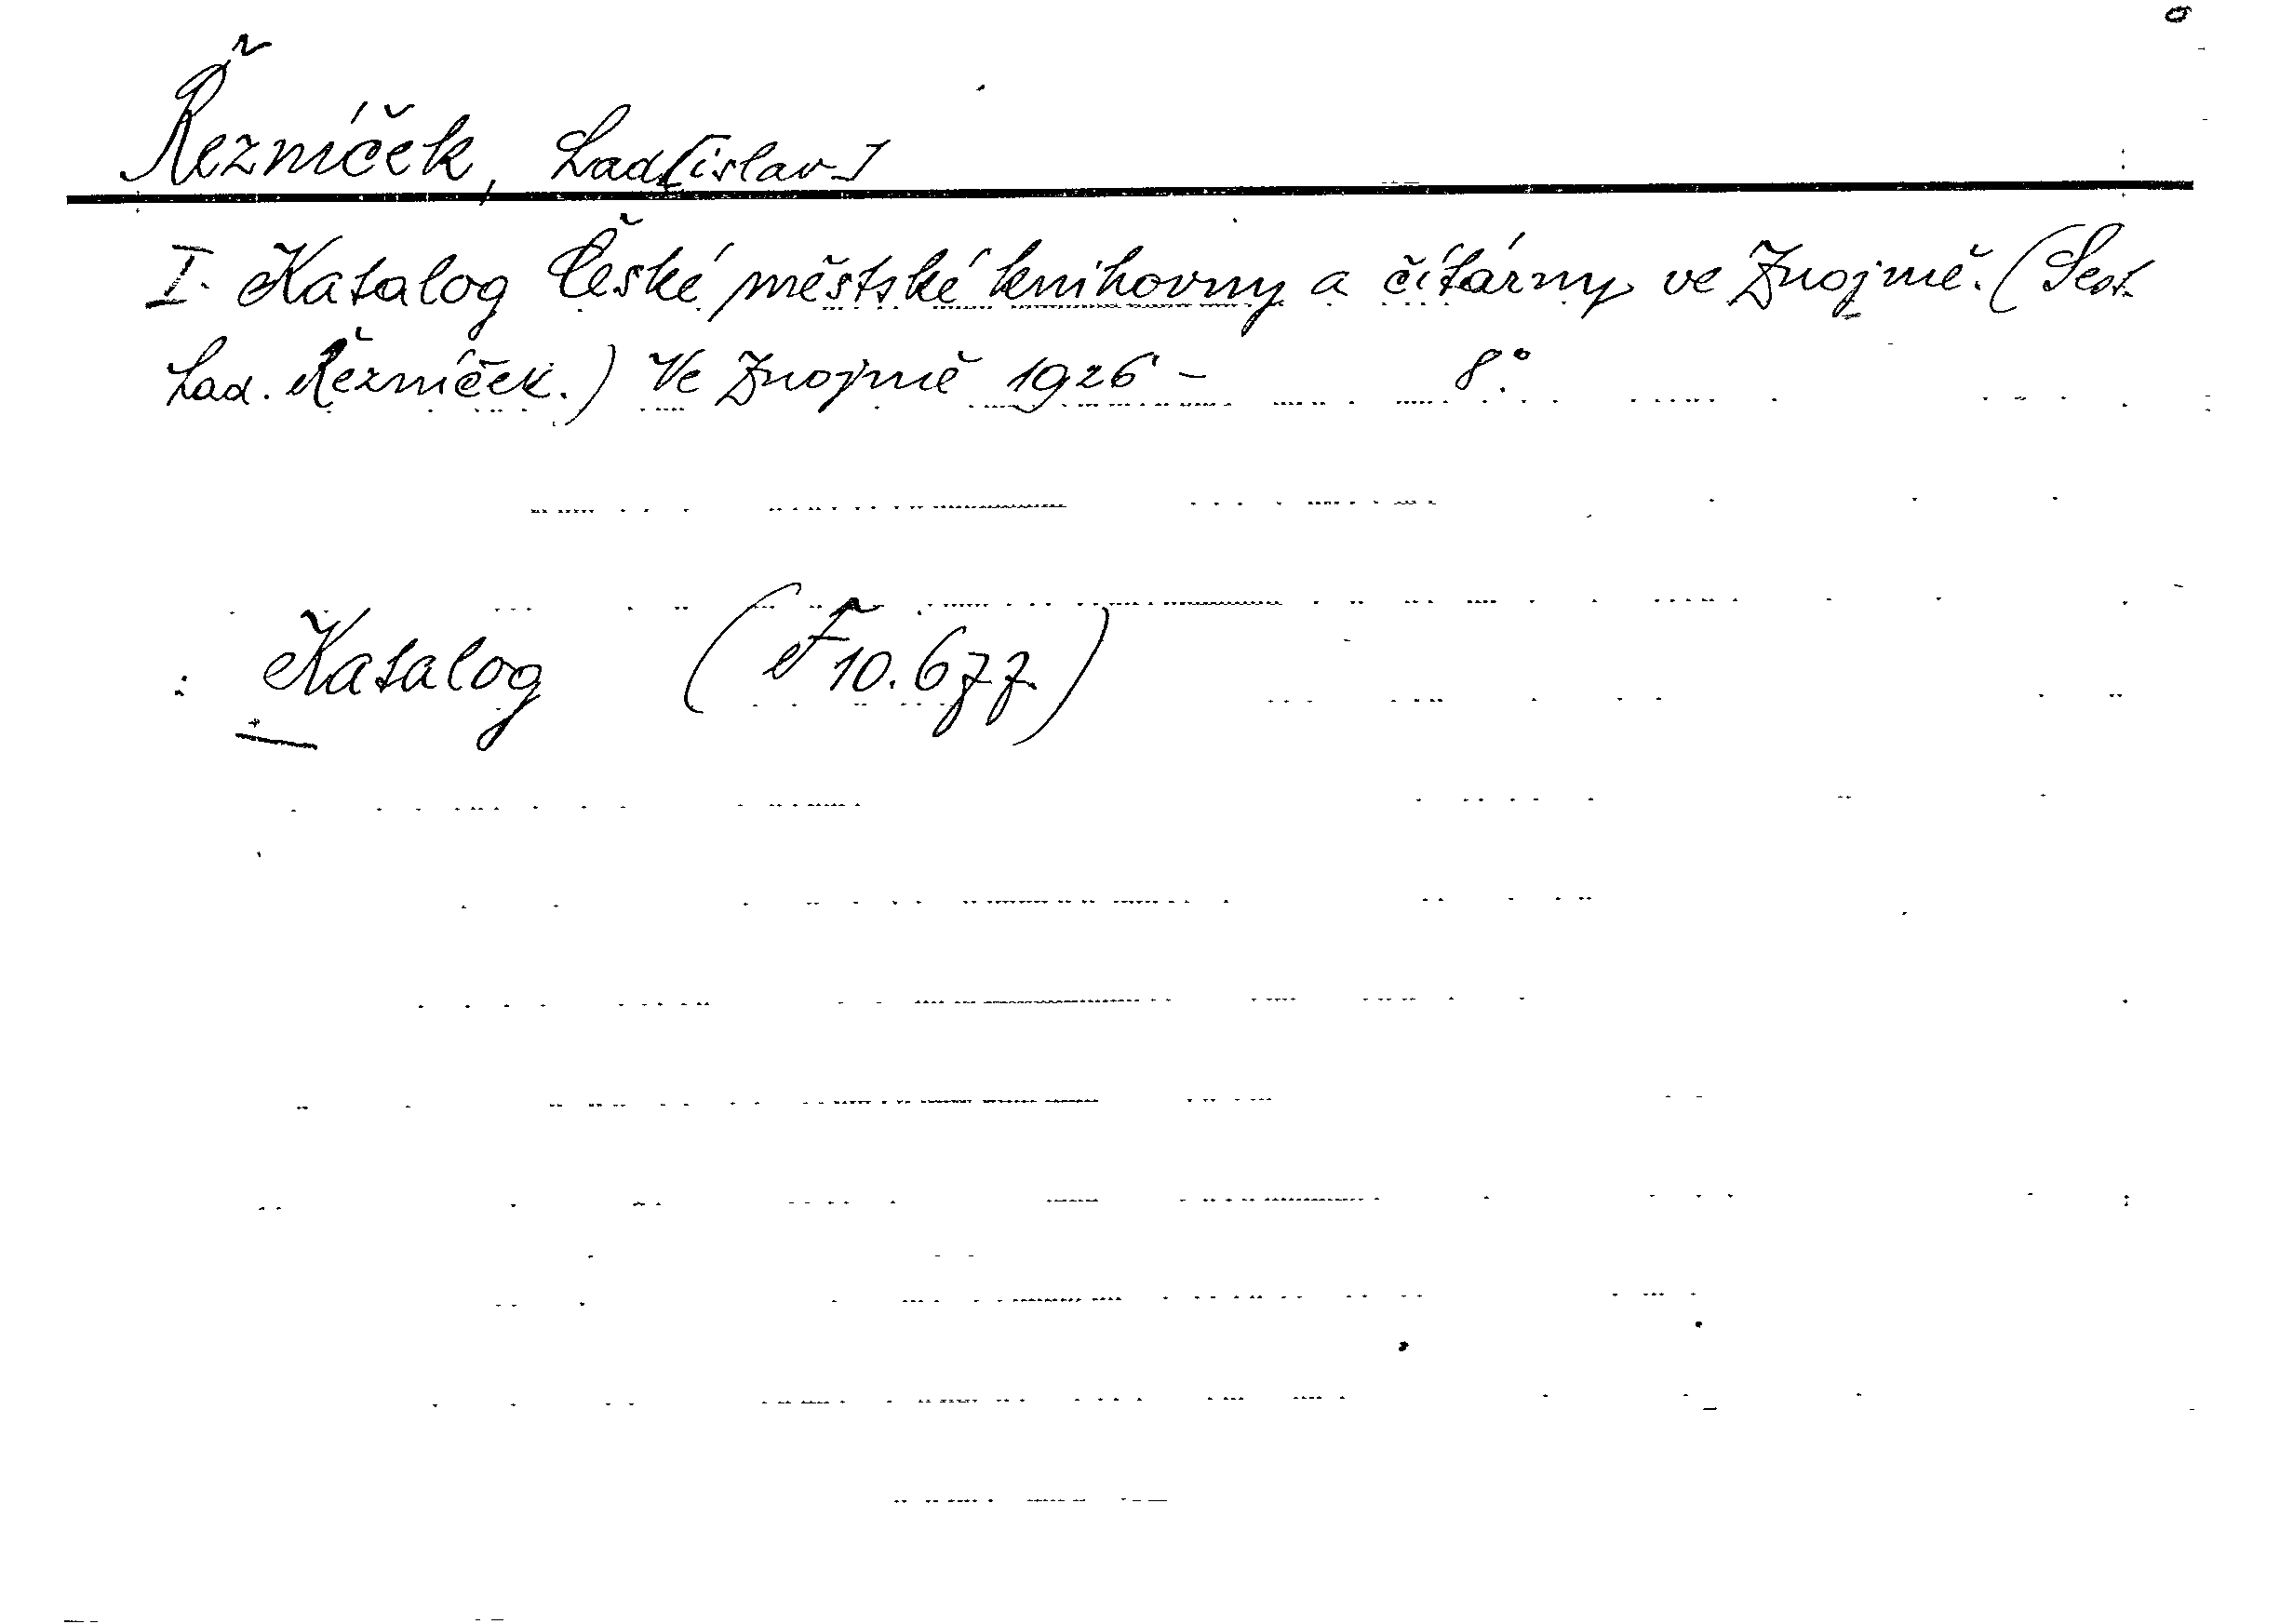 Řezníček, Lad[islav]
I. Katalog České městské knihovny a čítárny ve Znojmě. (Sest.
Lad. Řezníček.) Ve Znojmě 1926 - 8°.
Katalog (F 10.677.)